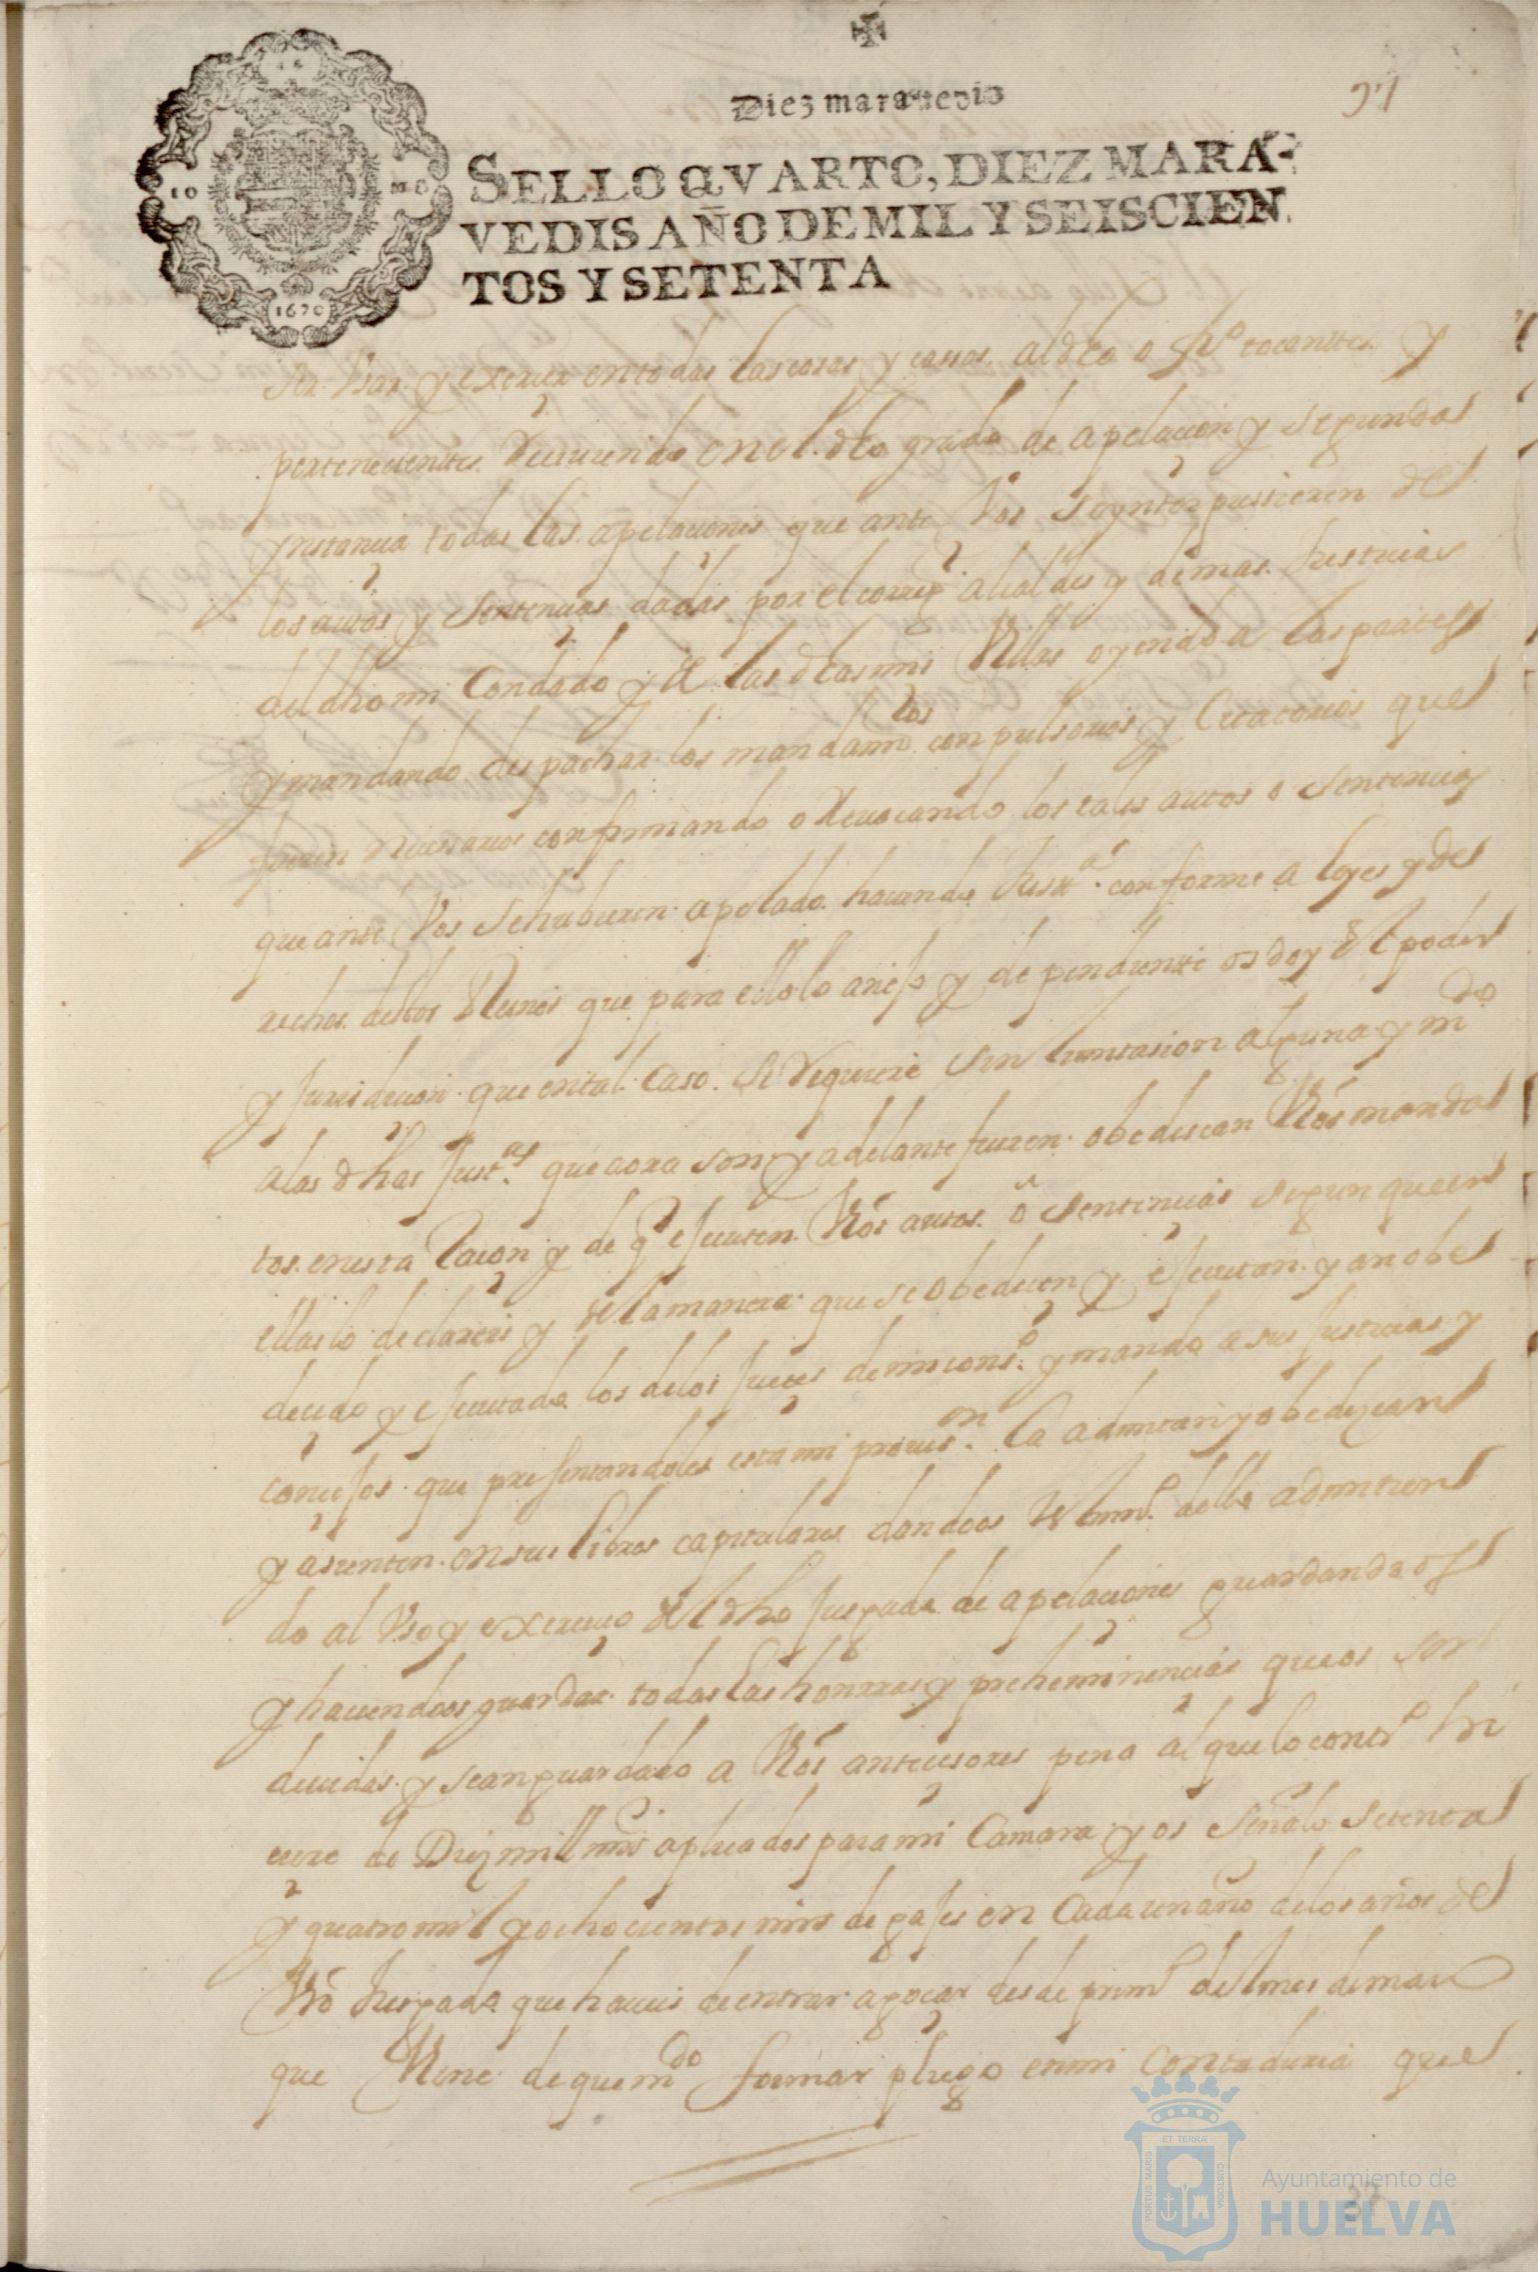 Diez marauedis
37
SELLO QVARTO, DIEZ MARA-
VEDIS AÑO DE MIL Y SEISCIEN
TOS Y SETENTA
10 MS
1670
Usar y exercer en todas las cosas y casos al dho ofiº tocantes y
pertenecientes Reciuiendo en el dho grado de apelacion y segunda
ynstancia todas las apelaciones que ante Vos se ynterpusieren de
los autos y sentencias dadas por el correxr alcaldes y demas Justicias
del dho mi Condado y de las dhas mis Villas oyendo a las partes
y mandando despachar los mandamtos conpulsorios y citatorios que
fueren necesarios confirmando o Reuocando los tales autos o sentencias
que ante Vos se hubieren apelado haciendo Justª conforme a leyes y de
rechos destos Reinos que para ello lo anejo y dependiente os doy el poder
y Jurisdicion que en tal caso se Requiere sin limitasion alguna y mdo
a las dhas Justas que aora son y adelante fueren obedescan Vros manda
tos en esta Racon y de q̃ ejecuten Vros autos o sentencias segun que en
ellas lo declareis y de la manera que se obedecen y ejecutan y an obe
decido y ejecutado los de los Jueces de mi consº y mando a sus Justicias y
concejos que presentandoles esta mi prouison la admitan y obedezcan
y asienten en sus libros capitulares dandoos testimº della admitien
do al Vso y exercicio del dho Juzgado de apelaciones guardandoos
y haciendoos guardar todas las honrras y preheminencias que os son
deuidas y sean guardado a Vros antecesores pena al que lo contrº hi
ciere de Diez mill mrs aplicados para mi Camara y os señalo setenta
y quatro mil y ochocientos mrs de gajes en cada un año de los años de
Vro Juzgado que haueis de entrar a gozar desde primº del mes de março
que Viene de que mdo formar pliego en mi contaduria que
PORTUS MARIS
ET TERRÆ
CUSTODIA
Ayuntamiento de
HUELVA
37